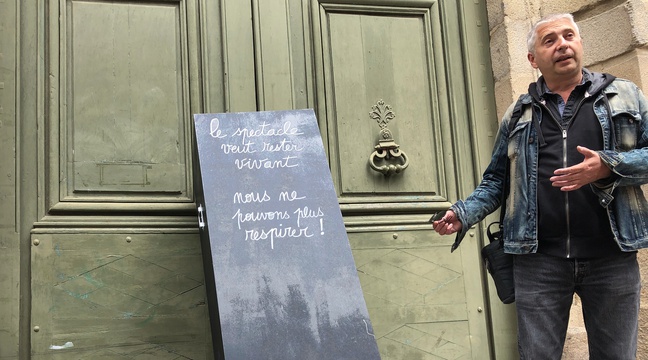 le spectacle
veut rester
vivant
nous ne
pouvons plus
respirer !